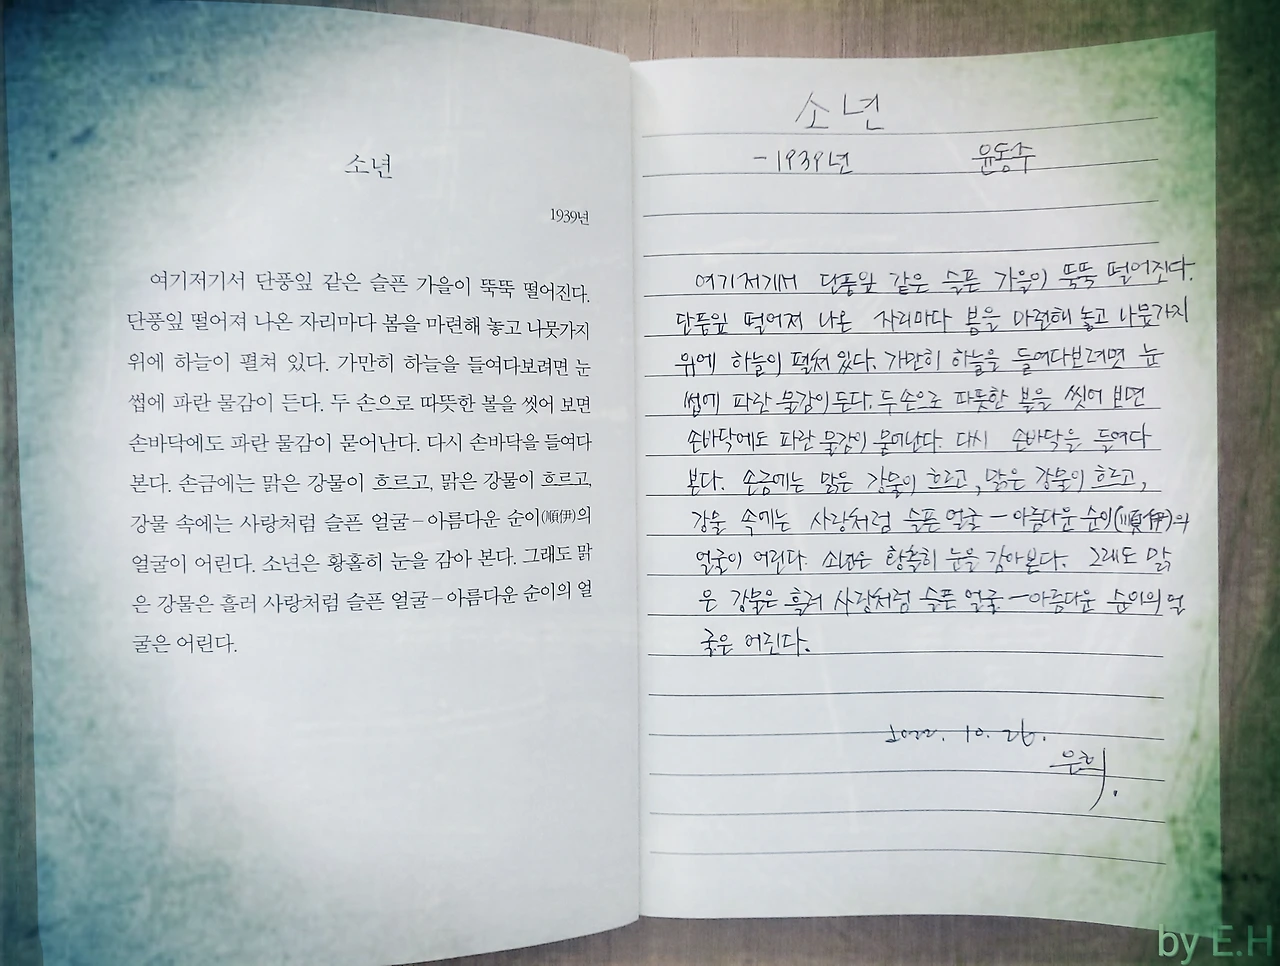 소년
1939년
여기저기서 단풍잎 같은 슬픈 가을이 뚝뚝 떨어진다.
단풍잎 떨어져 나온 자리마다 봄을 마련해 놓고 나뭇가지
위에 하늘이 펼쳐 있다. 가만히 하늘을 들여다보려면 눈
썹에 파란 물감이 든다. 두 손으로 따뜻한 볼을 씻어 보면
손바닥에도 파란 물감이 묻어난다. 다시 손바닥을 들여다
본다. 손금에는 맑은 강물이 흐르고, 맑은 강물이 흐르고,
강물 속에는 사랑처럼 슬픈 얼굴–아름다운 순이(順伊)의
얼굴이 어린다. 소년은 황홀히 눈을 감아 본다. 그래도 맑
은 강물은 흘러 사랑처럼 슬픈 얼굴–아름다운 순이의 얼
굴은 어린다.
소년
-1939년 윤동주
여기저게서 단풍잎 같은 슬픈 가을이 뚝뚝 떨어진다.
단풍잎 떨어져 나온 자리마다 봄을 마련해 놓고 나뭇가지
위에 하늘이 펼쳐 있다. 가만히 하늘을 들여다보려면 눈
썹에 파란 물감이 든다. 두 손으로 따뜻한 볼을 씻어 보면
손바닥에도 파란 물감이 묻어난다. 다시 손바닥을 들여다
본다. 손금에는 맑은 강물이 흐르고, 맑은 강물이 흐르고,
강물 속에는 사랑처럼 슬픈 얼굴–아름다운 순이(順伊)의
얼굴이 어린다. 소년은 황홀히 눈을 감아본다. 그래도 맑
은 강물은 흘러 사랑처럼 슬픈 얼굴–아름다운 순이의 얼
굴은 어린다.
2022. 10. 26.
은희
by E.H